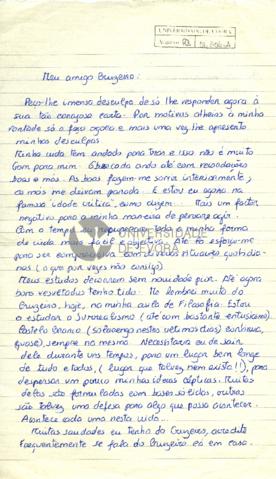 UNIVERSIDADE DE ÉVORA
Meu amigo Cruzeiro:
Peço-lhe imensa desculpa de só lhe responder agora à
sua tão corajosa carta. Por motivos alheios à minha
vontade só o faço agora e mais uma vez lhe apresento
minhas desculpas.
Minha vida tem andado para trás e isso não é muito
bom para mim. Obcecada ando até com recordações
boas e más. As boas fazem-me sorrir interiormente e
as más me deixam parada. E estou eu agora na
famosa idade crítica, como dizem. Mais um factor
negativo para a minha maneira de pensar e agir.
Com o tempo minha forma
de vida mais fácil e objectiva. Até me esforço-me
para ser com certos rituais quotidia-
nos (o que por vezes não consigo)
Meus estudos decorrem sem novidade por Até agora
bons resultados tenho tido. Me lembrei muito do
Cruzeiro, hoje, na minha aula de Filosofia. Estou
a estudar o Surrealismo (até com bastante entusiasmo).
Castelo Branco (salvo erro nestes últimos dias) continua,
quase, sempre na mesma. Necessitava eu de sair
dele durante uns tempos, para um lugar bem longe
de tudo e todos, (lugar que talvez nem exista!!), para
dispersar um pouco minhas ideias cépticas. Muitas
delas são formuladas com bases sólidas, outras
são talvez uma defesa para algo que possa acontecer.
Acontece cada uma nesta vida...
Muitas saudades eu tenho do Cruzeiro, acredite
frequentemente se fala do Cruzeiro cá em casa.
UNIVERSIDADE
DE ÉVORA